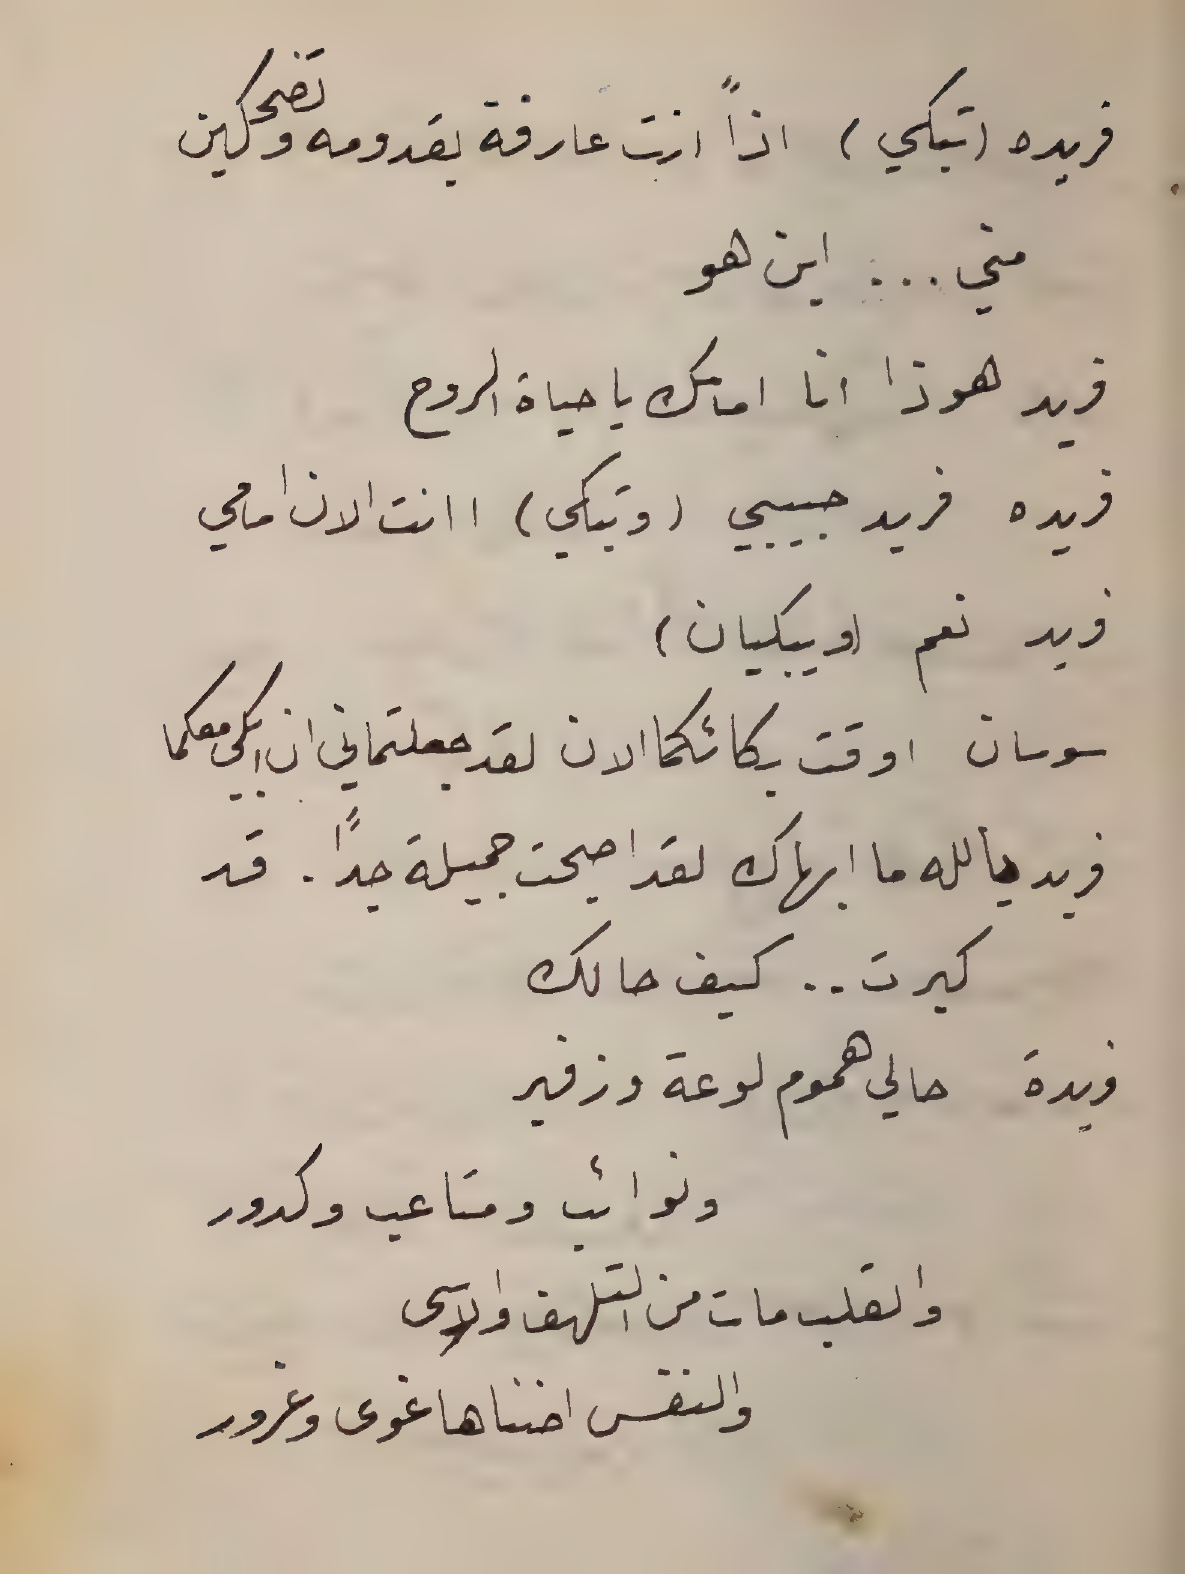 فريده (تبكي) اذاً انت عارفة بقدومه وتضحكين
مني... اين هو
فريد هوذا انا امامك يا حياة الروح
فريده فريد حبيبي (وتبكي) ا انت الان امامي
فريد نعم (ويبكيان)
سوسان اوقت بكائكما الان لقد جعلتماني ان ابكي معكما
فريد يالله ما ابهاك لقد اصبحت جميلة جداً. قد
كبرت.. كيف حالك
فريدة حالي هموم لوعة وزفير
ونوائب ومتاعب وكدور
والقلب مات من التلهف والاسى
والنفس اضناها غوى وغرور